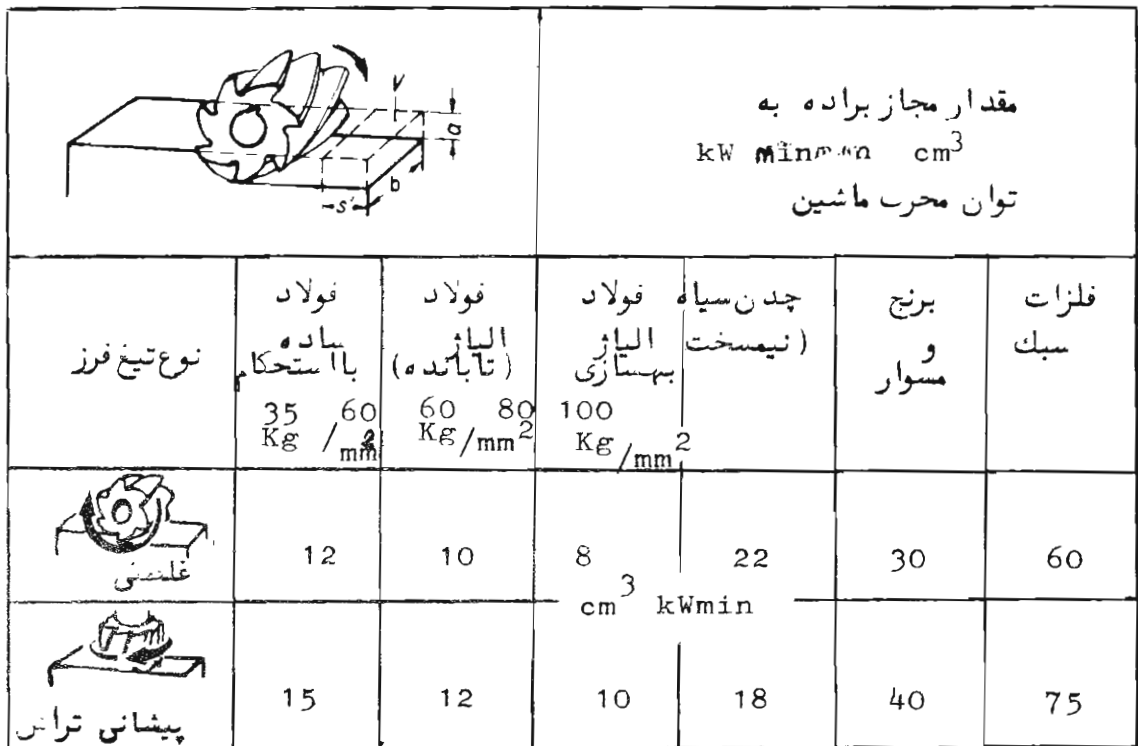 V
a
b
s'
مقدار مجاز براده به
kW min cm3
توان محرب ماشین
نوع تیغ فرز
فولاد
ساده
بااستحکام
35 60
Kg /mm2
فولاد
الیاژ
(تابانده)
60 80
Kg/mm2
فولاد
الیاژ
بهسازی
100
Kg/mm2
چدن سیاه
(نیمسخت
برنج
و
مسوار
فلزات
سبك
12
10
8
22
30
60
cm3 kWmin
پیشانی
15
12
10
18
40
75